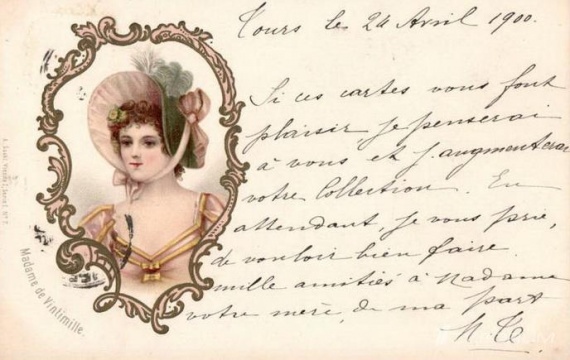 Tours le 24 Avril 1900.
Si ces cartes vous font
plaisir je penserai
à vous et j'augmenterai
votre Collection. En
attendant, je vous prie,
de vouloir bien faire
mille amitiés à Madame
votre mère, de ma part
Madame de Vintimille.